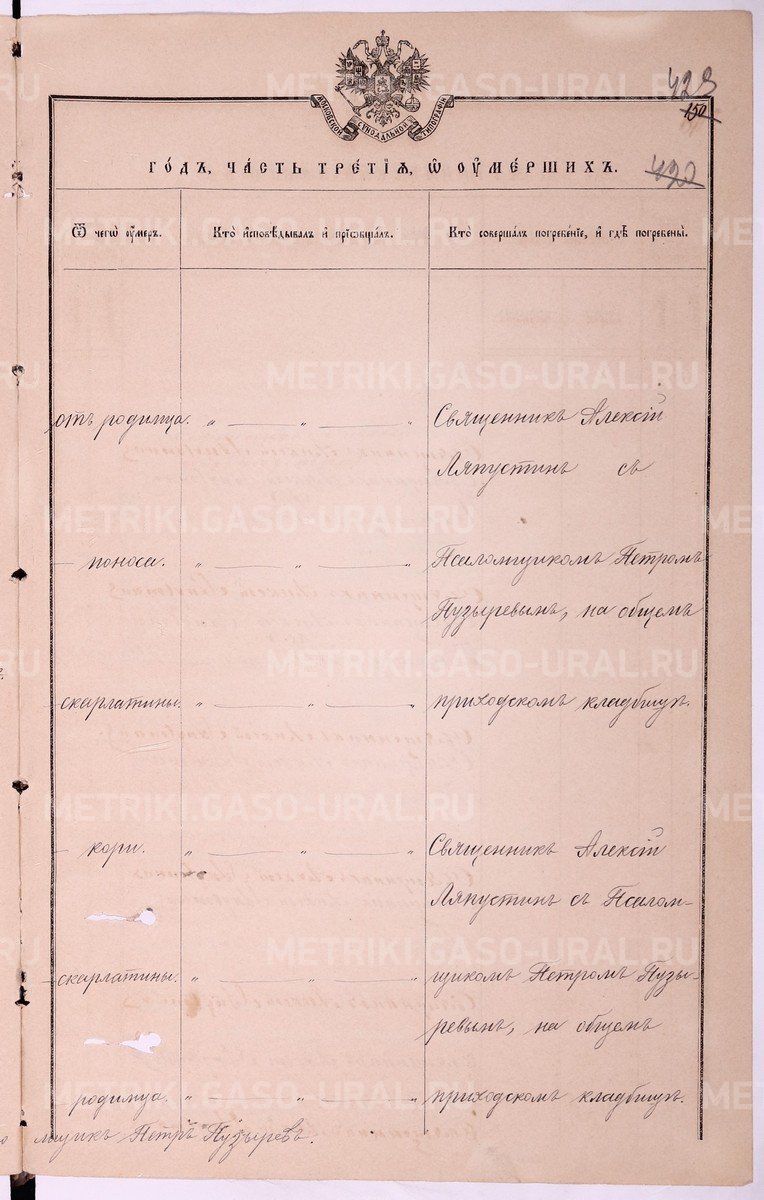 429
150
420
МОСКОВСКОЙ СѴНОДАЛЬНОЙ ТИПОГРАФІИ
ГО́ДЪ, ЧА́СТЬ ТРЕ́ТІѦ, Ѡ҆ ОУ҆МЕ́РШИХЪ.
Ѿ чегѡ̀ оу҆́меръ.
Кто̀ и҆сповѣ́дывалъ и҆ прїѡбща́лъ.
Кто̀ соверша́лъ погребе́нїе, и҆ гдѣ̀ погребены̀.
отъ родимца. „ — „ — „ Священникъ Алексій
Ляпустинъ съ
— поноса. „ — „ — „ Псаломщикомъ Петромъ
Пузыревымъ, на общемъ
— скарлатины. „ — „ — „ приходскомъ кладбищѣ.
— кори. „ — „ — „ Священникъ Алексій
Ляпустинъ съ Псалом-
— скарлатины. „ — „ — „ щикомъ Петромъ Пузы-
ревымъ, на общемъ
родимца. „ — „ — „ приходскомъ кладбищѣ.
мщикъ Петръ Пузыревъ.
METRIKI.GASO-URAL.RU